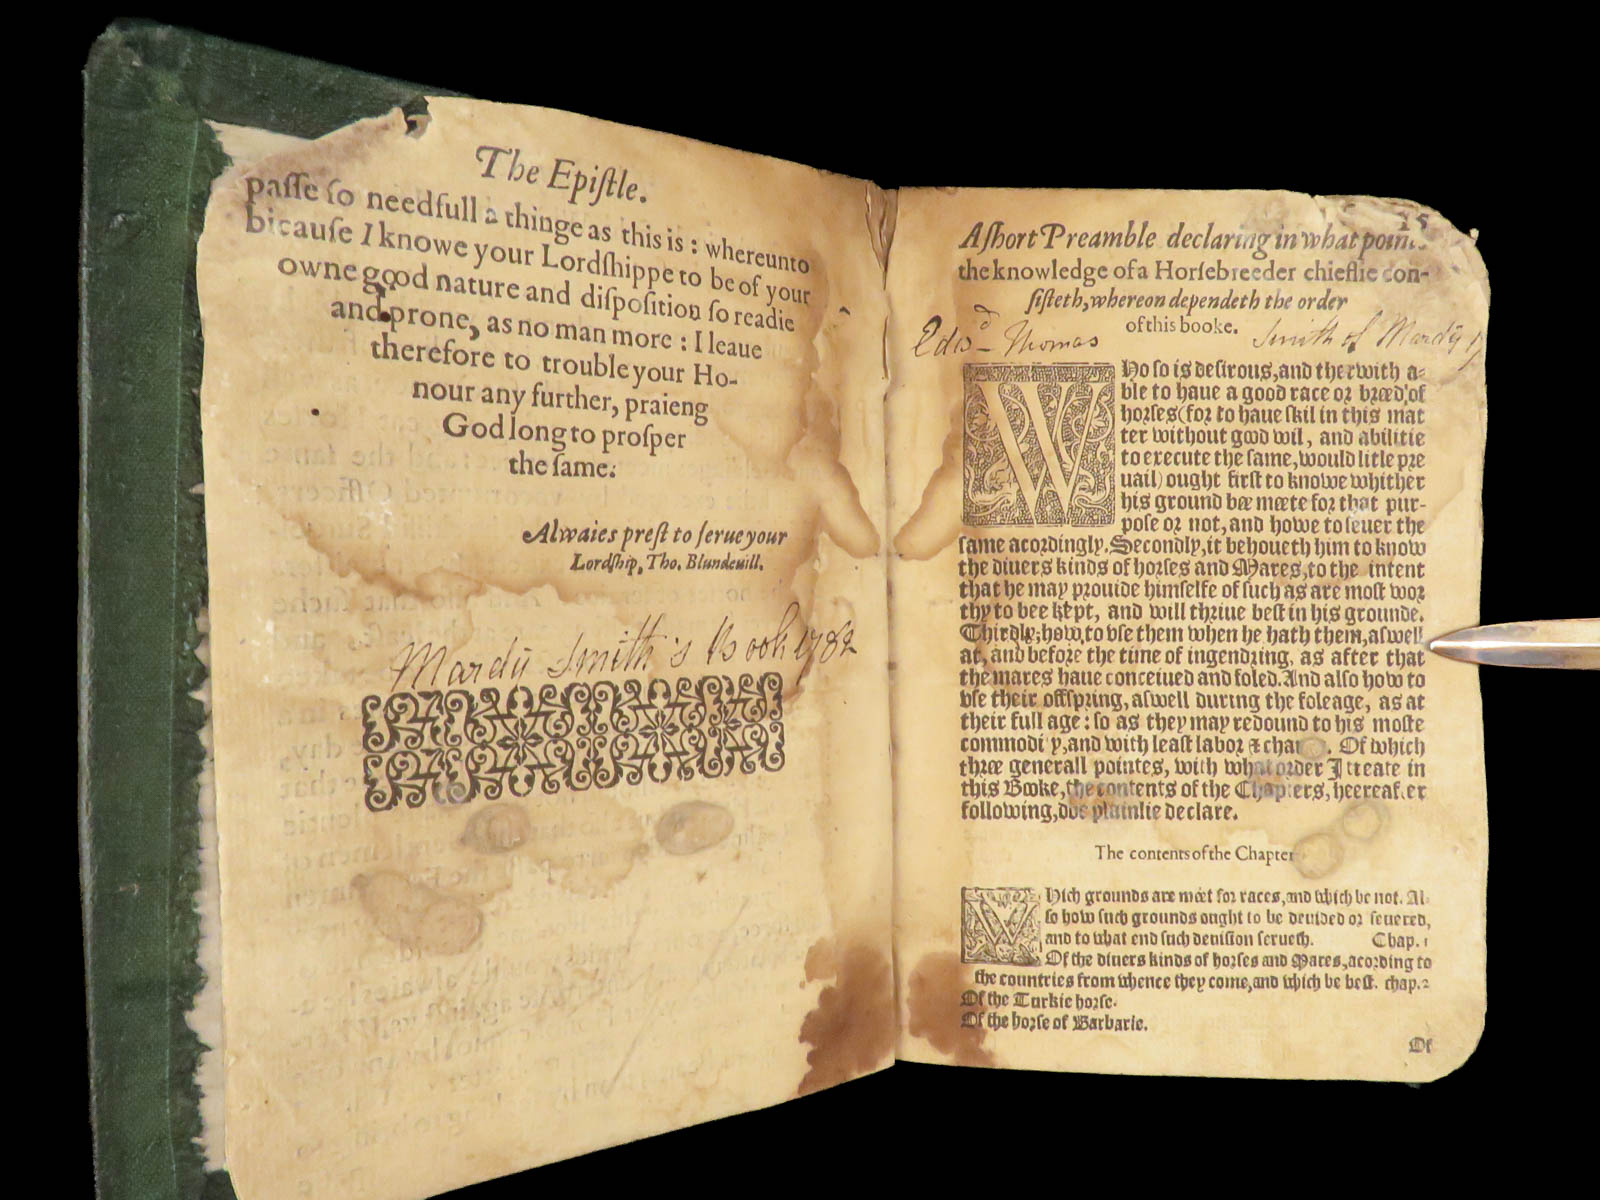 The Epiſtle.
paſſe ſo needfull a thinge as this is : whereunto
bicauſe I knowe your Lordſhippe to be of your
owne good nature and diſpoſition ſo readie
and prone, as no man more : I leaue
therefore to trouble your Ho-
nour any further, praieng
God long to proſper
the ſame.
Alwaies preſt to ſerue your
Lordſhip, Tho. Blundeuill.
Mardy Smith's Book 1782
A ſhort Preamble declaring in what
the knowledge of a Horſebreeder chieflie con-
ſiſteth, whereon dependeth the order
of this booke.
Edwd Thomas Smith of Mardy
WHo ſo is deſirous, and therwith a-
ble to haue a good race or breed of
horſes (for to haue ſkil in this mat
ter without good wil, and abilitie
to execute the ſame, would litle pre
uail) ought firſt to knowe whither
his ground bee meete for that pur-
poſe or not, and howe to ſeuer the
ſame acordingly. Secondly, it behoueth him to know
the diuers kinds of horſes and Mares, to the intent
that he may prouide himſelfe of ſuch as are moſt wor
thy to bee kept, and will thriue beſt in his grounde.
Thirdly, how to vſe them when he hath them, aſwell
at, and before the time of ingendring, as after that
the mares haue conceiued and foled. And alſo how to
vſe their offſpring, aſwell during the foleage, as at
their full age : ſo as they may redound to his moſte
commodi y, and with leaſt labor & char . Of which
three generall pointes, with what order I treate in
this Booke, the contents of the Chapters, heereafter
following, doe plainlie declare.
The contents of the Chapter
WHich grounds are meet for races, and which be not. Al-
ſo how ſuch grounds ought to be deuided or ſeuered,
and to what end ſuch deuiſion ſerueth. Chap. 1
Of the diuers kinds of horſes and Mares, acording to
the countries from whence they come, and which be beſt. chap. 2
Of the Turkie horſe.
Of the horſe of Barbarie.
Of